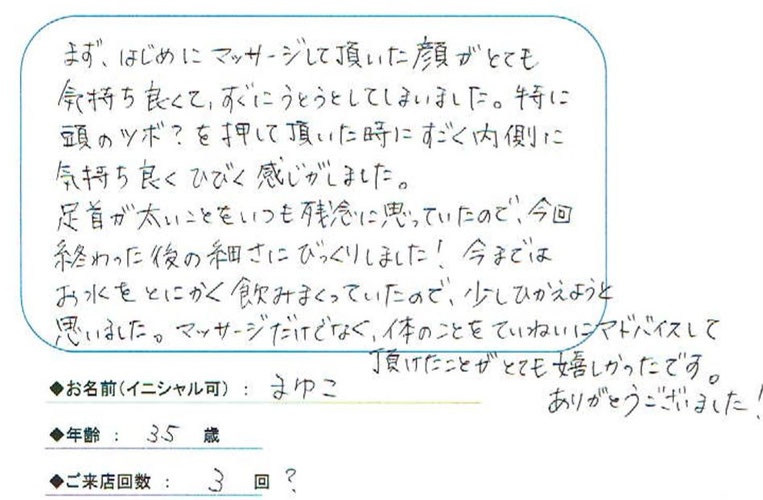 まず、はじめにマッサージして頂いた顔がとても
気持ち良くて、すぐにうとうとしてしまいました。特に
頭のツボ?を押して頂いた時にすごく内側に
気持ち良くひびく感じがしました。
足首が太いことをいつも残念に思っていたので、今回
終わった後の細さにびっくりしました!今までは
お水をとにかく飲みまくっていたので、少しひかえようと
思いました。マッサージだけでなく、体のことをていねいにアドバイスして
頂けたことがとても嬉しかったです。
ありがとうございました!
◆お名前(イニシャル可): まゆこ
◆年齢: 35 歳
◆ご来店回数: 3 回?